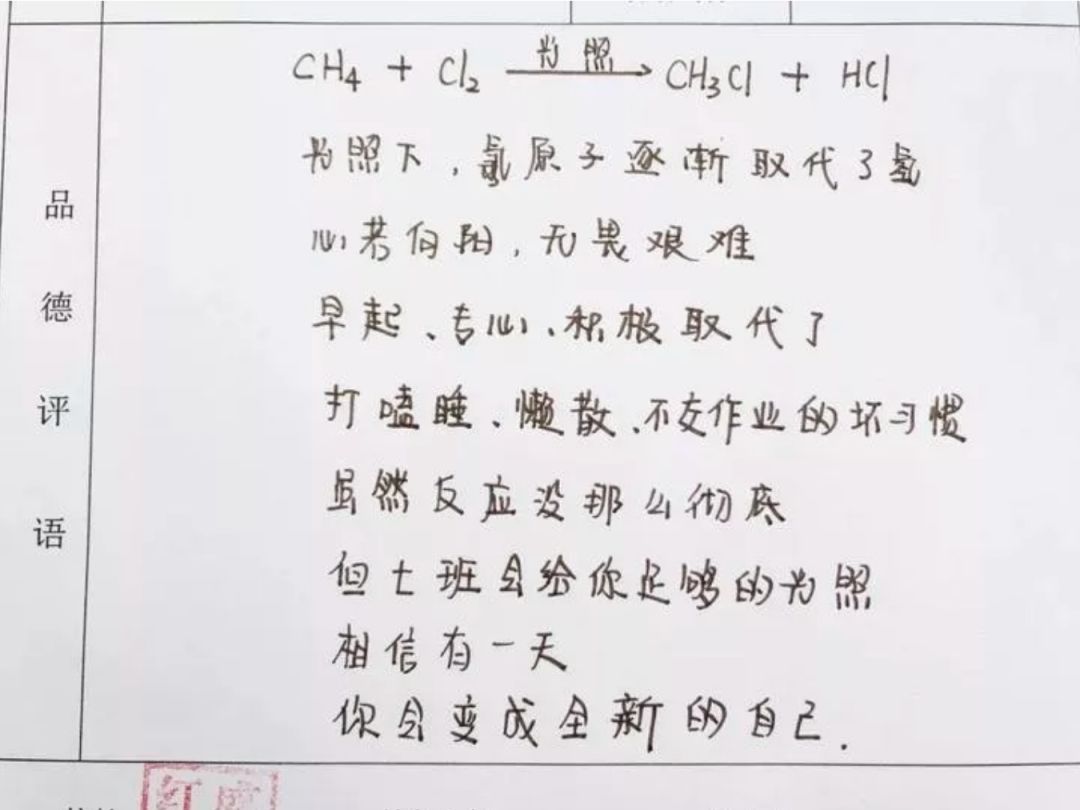 CH4 + Cl2 光照→ CH3Cl + HCl
光照下，氯原子逐渐取代了氢
心若向阳，无畏艰难
早起、专心、积极取代了
打嗑睡、懒散、不交作业的坏习惯
虽然反应没那么彻底
但七班会给你足够的光照
相信有一天
你会变成全新的自己.
品
德
评
语